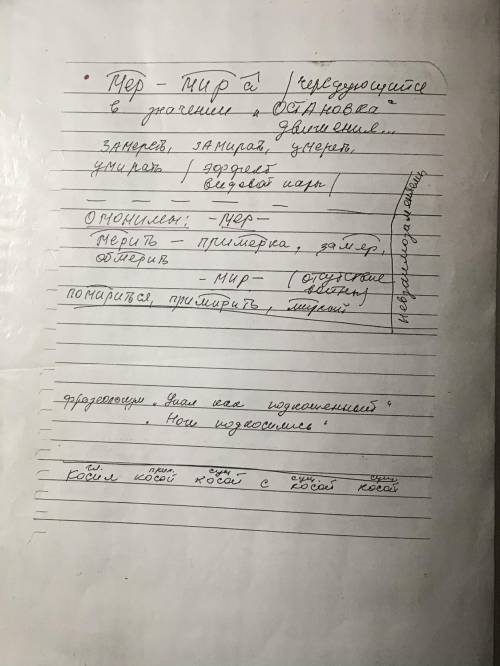 Мер – мир а /чередующийся
в значении „ОСТАНОВКА“
движения...
замереть, замирать, умереть,
умирать / эффект
видовой пары /
Омонимы: -мер-
мерить – примерка, замер,
обмерить
-мир- (отсутствие
войны)
помириться, примирить, мирный
невзаимозаменяемы
фразеологизм „Упал как подкошенный“
„Ноги подкосились“
гл. прил. сущ. сущ. сущ.
Косил косой косой с косой косой